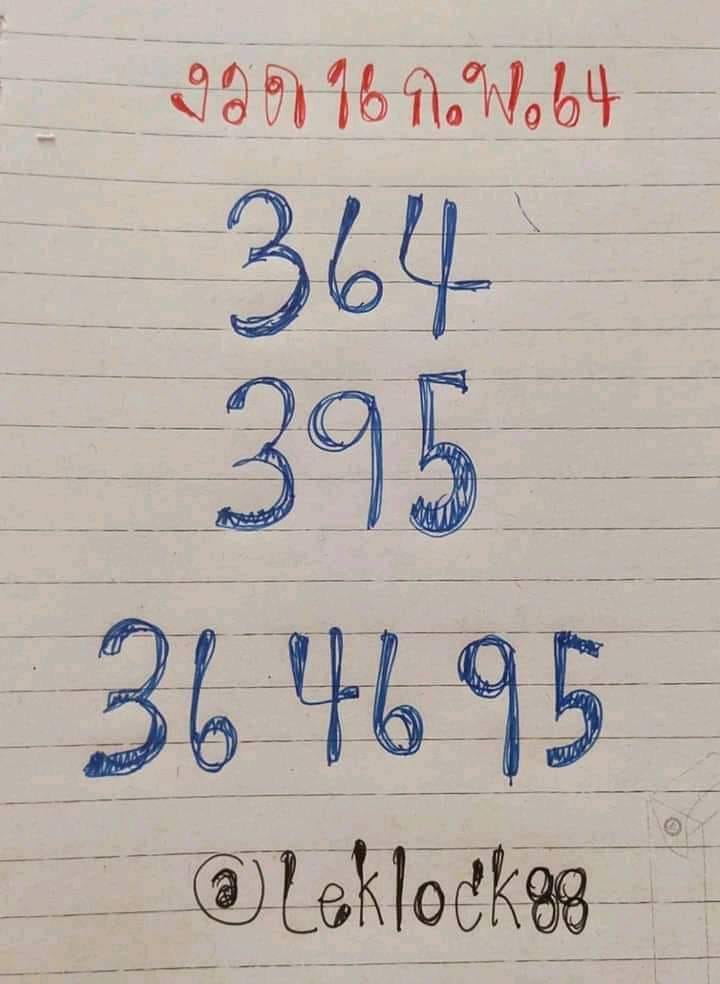 งวด 16 ก.พ.64
364
395
36 46 95
@Leklock88